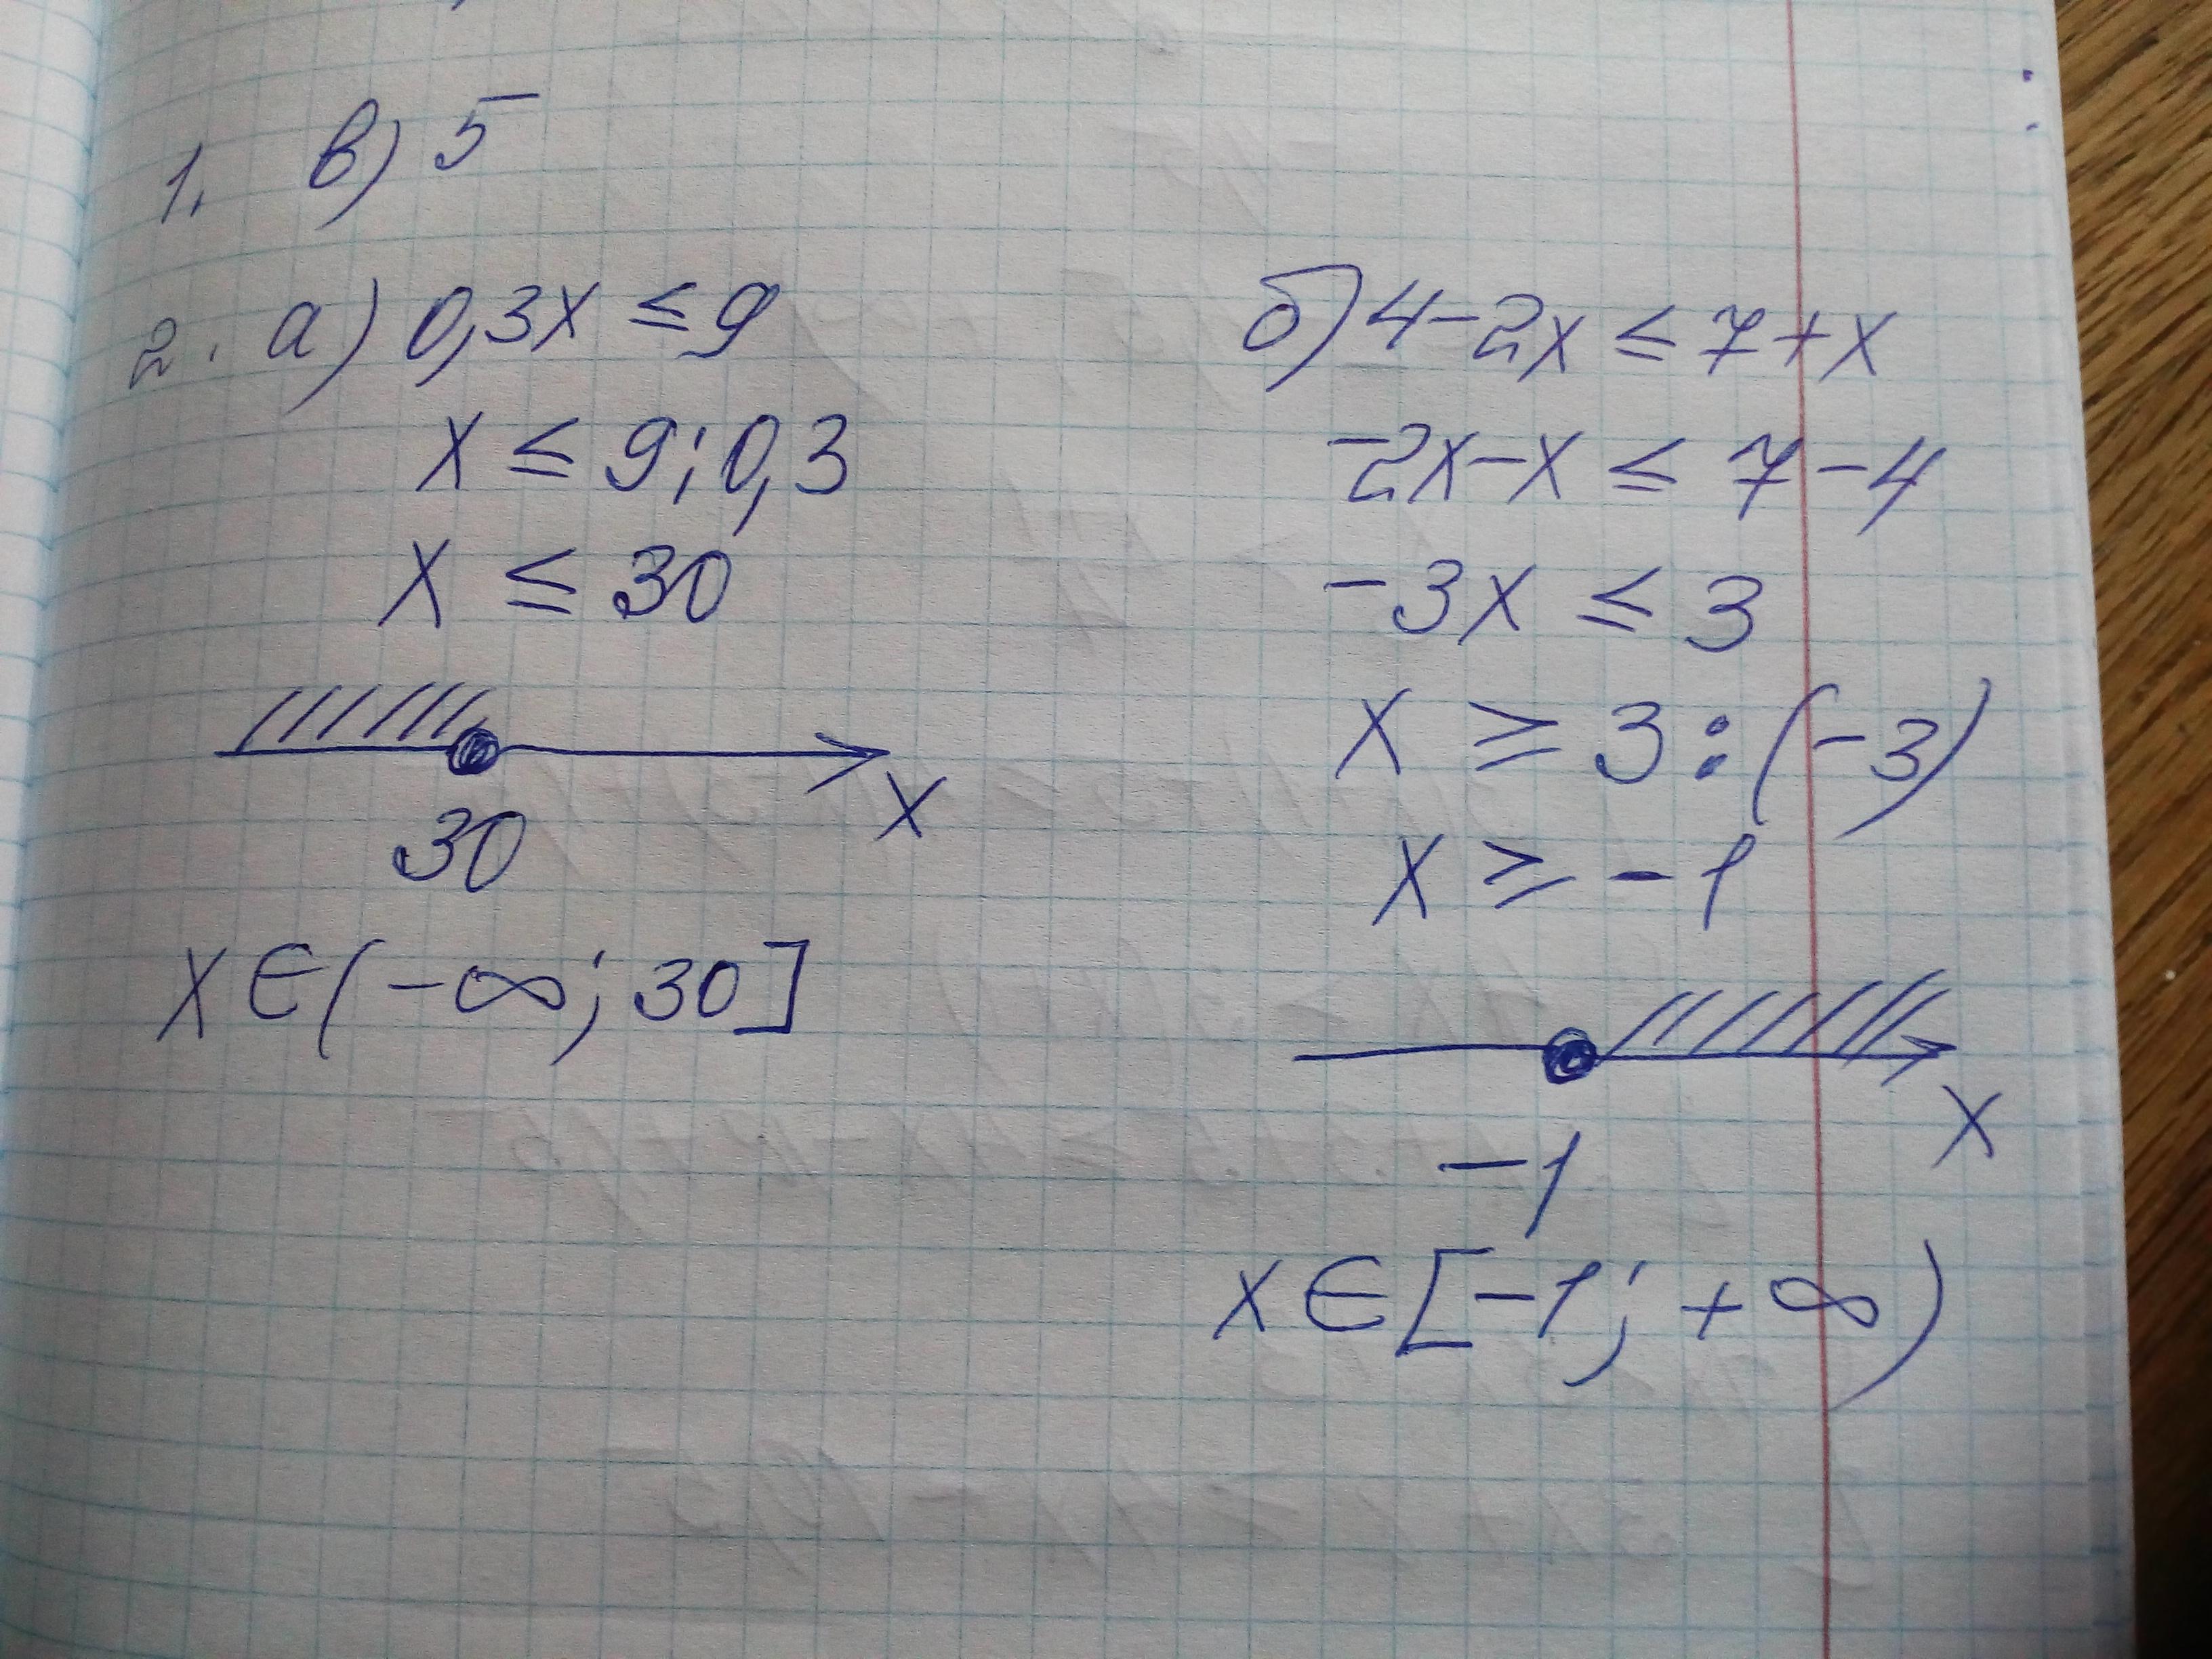 1. в) 5
2. а) 0,3x ≤ 9
x ≤ 9:0,3
x ≤ 30
30
x
x ∈ (-∞; 30]
б) 4-2x ≤ 7+x
-2x-x ≤ 7-4
-3x ≤ 3
x ≥ 3:(-3)
x ≥ -1
-1
x
x ∈ [-1; +∞)